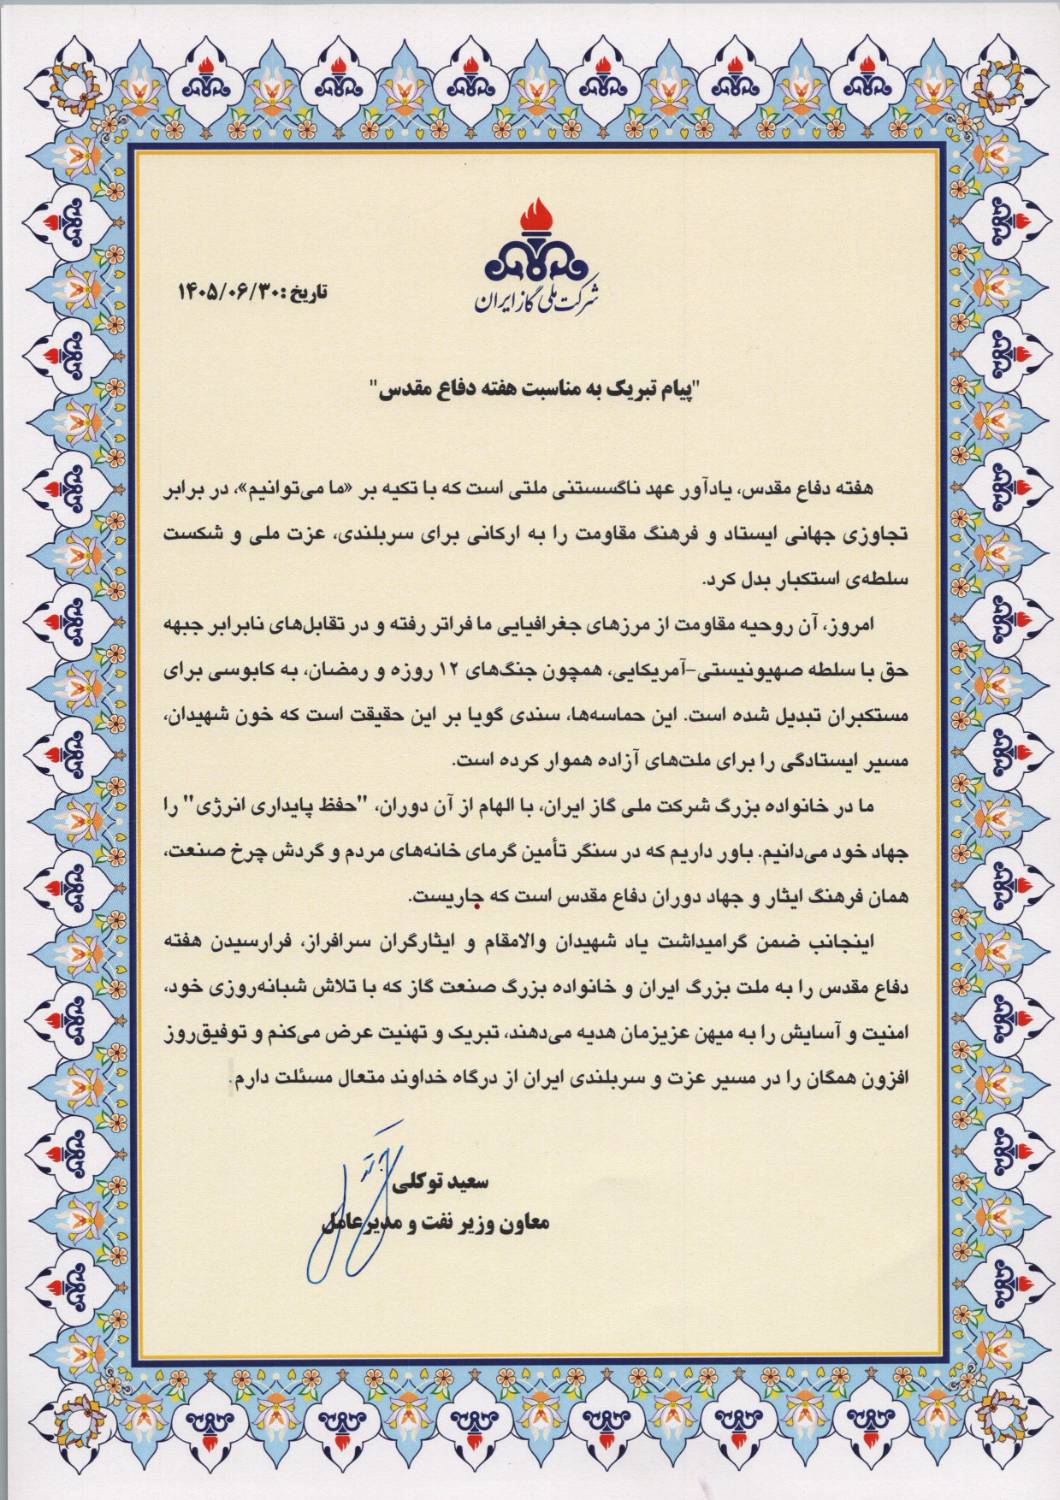 شرکت ملی گاز ایران
تاریخ :۱۴۰۵/۰۶/۳۰
"پیام تبریک به مناسبت هفته دفاع مقدس"
هفته دفاع مقدس، یادآور عهد ناگسستنی ملتی است که با تکیه بر «ما می‌توانیم»، در برابر
تجاوزی جهانی ایستاد و فرهنگ مقاومت را به ارکانی برای سربلندی، عزت ملی و شکست
سلطه‌ی استکبار بدل کرد.
امروز، آن روحیه مقاومت از مرزهای جغرافیایی ما فراتر رفته و در تقابل‌های نابرابر جبهه
حق با سلطه صهیونیستی-آمریکایی، همچون جنگ‌های ۱۲ روزه و رمضان، به کابوسی برای
مستکبران تبدیل شده است. این حماسه‌ها، سندی گویا بر این حقیقت است که خون شهیدان،
مسیر ایستادگی را برای ملت‌های آزاده هموار کرده است.
ما در خانواده بزرگ شرکت ملی گاز ایران، با الهام از آن دوران، "حفظ پایداری انرژی" را
جهاد خود می‌دانیم. باور داریم که در سنگر تأمین گرمای خانه‌های مردم و گردش چرخ صنعت،
همان فرهنگ ایثار و جهاد دوران دفاع مقدس است که جاریست.
اینجانب ضمن گرامیداشت یاد شهیدان والامقام و ایثارگران سرافراز، فرارسیدن هفته
دفاع مقدس را به ملت بزرگ ایران و خانواده بزرگ صنعت گاز که با تلاش شبانه‌روزی خود،
امنیت و آسایش را به میهن عزیزمان هدیه می‌دهند، تبریک و تهنیت عرض می‌کنم و توفیق‌روز
افزون همگان را در مسیر عزت و سربلندی ایران از درگاه خداوند متعال مسئلت دارم.
سعید توکلی
معاون وزیر نفت و مدیرعامل